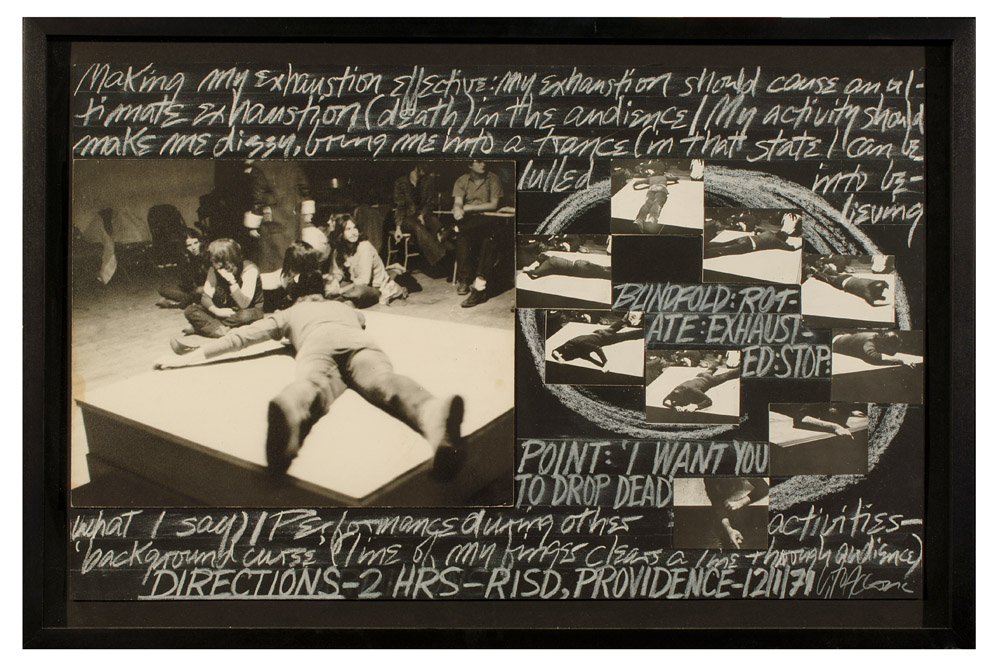 Making my exhaustion effective: my exhaustion should cause an ul-
timate exhaustion (death) in the audience / My activity should
make me dizzy, bring me into a trance (in that state I can be
lulled into be-
lieving
BLINDFOLD: ROT-
ATE: EXHAUST-
ED: STOP:
POINT: 'I WANT YOU
TO DROP DEAD'
what I say) / Performance during other activities–
'background curse' (line of my finger clears a line through audience)
DIRECTIONS–2 HRS–RISD, PROVIDENCE–12/1/71 V. Acconci